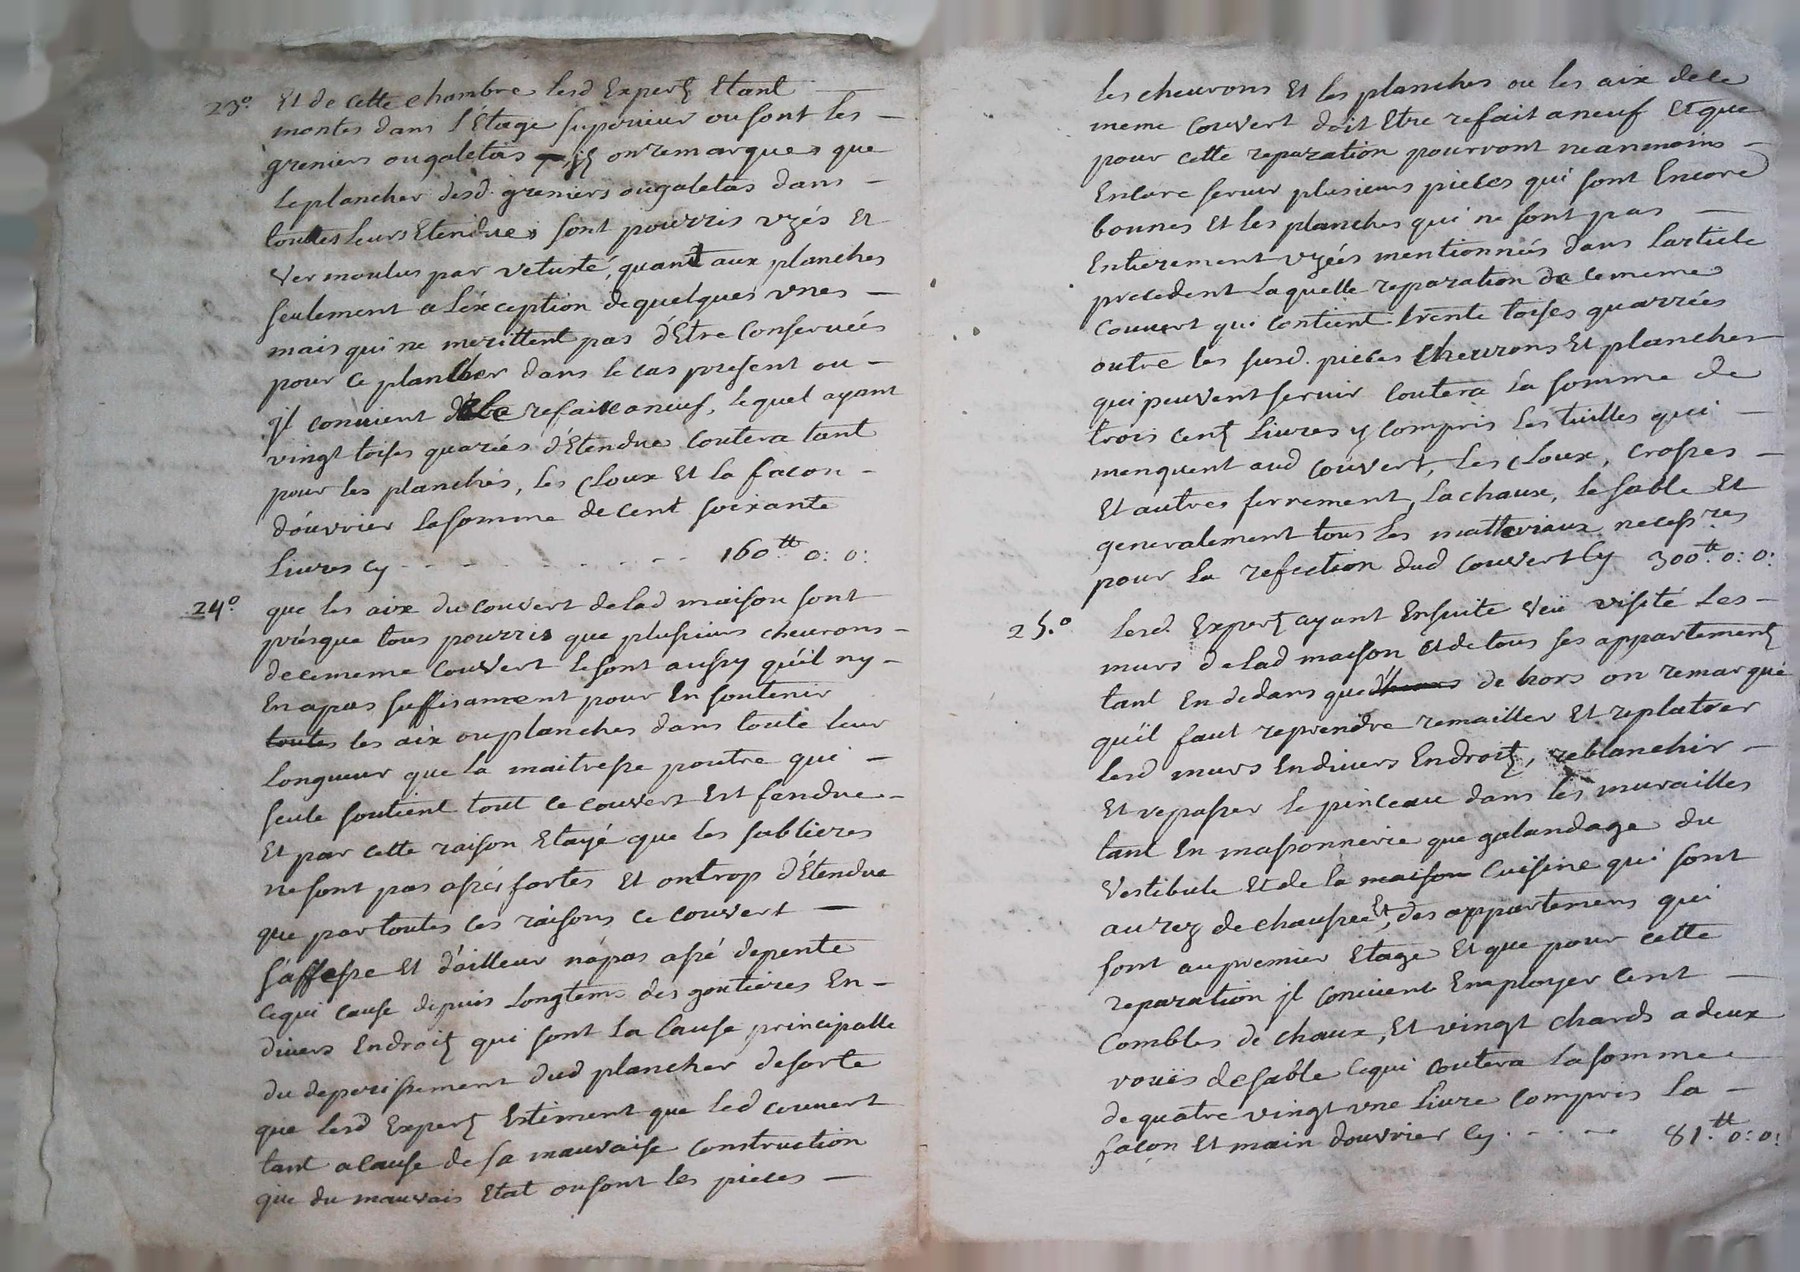 23º. Et de cette chambre lesd Experts Etant
montes dans l'Etage superieur ou sont les —
greniers ou galetas ils on remarques que
le plancher desd. greniers ou galetas dans —
toutes leurs Etendues sont pourris uzés et
vermoulus par vetusté, quant aux planches
seulement a l'éxception de quelques unes —
mais qui ne merittent pas d'Etre conservées
pour ce plancher dans le cas present ou —
il convient d'etre refait a neuf, lequel ayant
vingt toises quarées d'Etendue coutera tant
pour les planchés, les cloux et la facon —
d'ouvrier la somme de cent soixante
Livres cy - - - - - - - - - 160.tt 0: 0:
24º. que les aix du couvert de lad maison sont
présque tous pourris que plusieurs chevrons —
de ce meme couvert le sont aussy qu'il ny —
En a pas suffisament pour En soutenir
toutes les aix ou planches dans toute leur
longueur que la maitresse poutre qui —
seule soutient tout ce couvert Est fendue —
Et par cette raison Etayé que les sablieres
ne sont pas assés fortes Et ont trop d'Etendue
que par toutes ces raisons ce couvert —
s'affesse Et d'ailleur n'a pas assé de pente
ce qui cause depuis longtems des goutieres En —
divers Endroits qui sont la cause principalle
du deperissement dud plancher de sorte
que lesd Experts Estiment que led couvert
tant a cause de sa mauvaise construction
que du mauvais Etat ou sont les pieces —
les chevrons Et les planches ou les aix de ce
meme couvert doit Etre refait a neuf Et que
pour cette reparation pourront neanmoins —
Encore servir plusieurs pieces qui sont Encore
bonnes Et les planches qui ne sont pas —
Entierement uzées mentionnées dans l'article
precedent laquelle reparation de ce meme
couvert qui contient trente toises quarrées
outre les susd. pieces chevrons Et planches
qui peuvent servir coutera la somme de
trois cents Livres y compris les tuilles qui —
menquent aud couvert, les cloux, crosses —
Et autres ferrement, la chaux, le sable Et
generalement tous les matteriaux necessres
pour la refection dud couvert Cy 300.tt 0: 0:
25.º Lesd. Experts ayant Ensuite veü visité les —
murs de lad maison Et de tous ses appartements
tant En dedans que dehors on remarqué
qu'il faut reprendre remailler Et replatrer
lesd murs En divers Endroits, reblanchir —
Et repasser le pinceau dans les murailles
tant En massonnerie que galandage du
vestibule Et de la maison Cuisine qui sont
au rez de chaussée Et, des appartemens qui
sont au premier Etage Et que pour cette
reparation il convient Employer cent —
Combles de chaux, Et vingt chards a deux
rouës de sable ce qui coutera la somme
de quatre vingt une Livre compris la —
facon Et main d'ouvrier Cy - - - — 81.tt 0: 0: